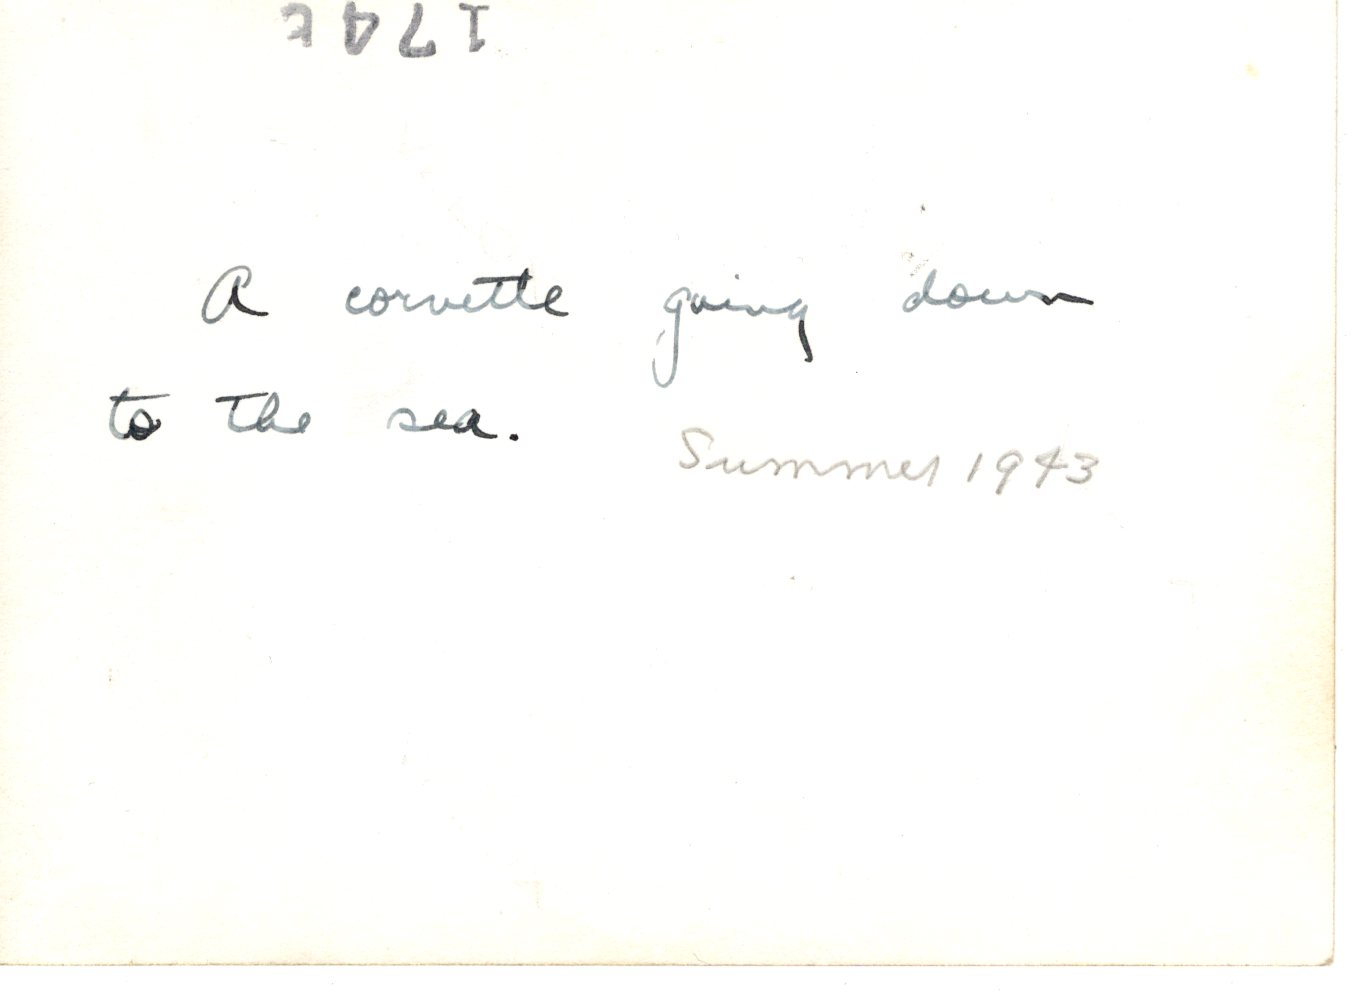 A corvette going down
to the sea.
Summer 1943